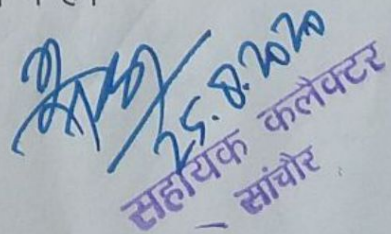 25.8.2020
सहायक कलेक्टर
सांचोर